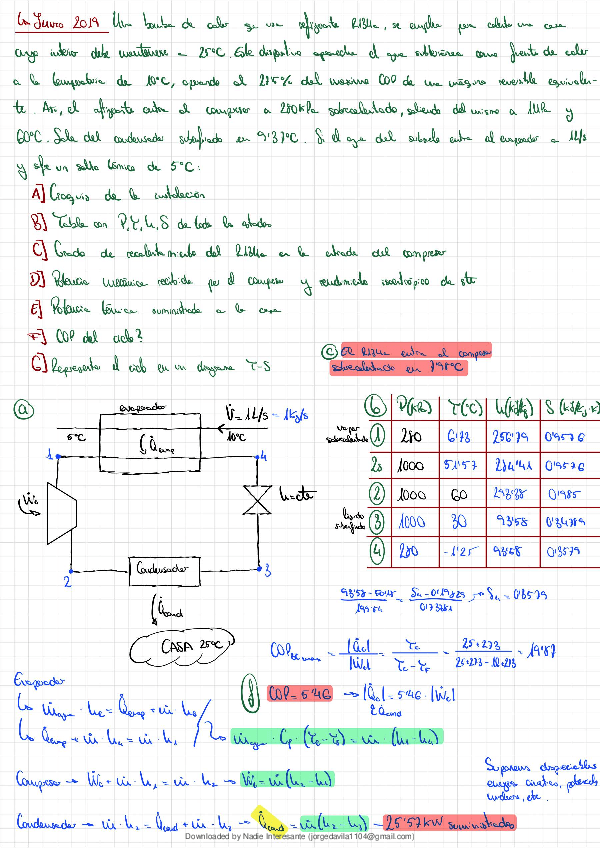 6 Junio 2019 Una bomba de calor que usa refrigerante R134a, se emplea para calentar una casa
cuyo interior debe mantenerse a 25°C. Este dispositivo aprovecha el agua subterránea como fuente de calor
a la temperatura de 10°C, operando al 27'5% del máximo COP de una máquina reversible equivalen-
te. Así, el refrigerante entra al compresor a 280kPa sobrecalentado, saliendo del mismo a 1MPa y
60°C. Sale del condensador subenfriado en 9'37°C. Si el agua del subsuelo entra al evaporador a 1L/s
y sufre un salto térmico de 5°C:
A] Croquis de la instalación
B] Tabla con P, T, h, S de todos los estados
C] Grado de recalentamiento del R134a en la entrada del compresor
D] Potencia mecánica recibida por el compresor y rendimiento isentrópico de este
E] Potencia térmica suministrada a la casa
F] COP del ciclo?
G] Representar el ciclo en un diagrama T-S
c) El R134a entra al compresor
sobrecalentado en 7'98°C
a)
evaporador
V̇ = 1L/s = 1kg/s
5°C
10°C
Q̇evap
1
4
Ẇc
h=cte
2
Condensador
3
Q̇cond
CASA 25°C
b) P(kPa) T(°C) h(kJ/kg) S(kJ/kg·K)
vapor sobrecalentado 1 280 6'73 256'79 0'9576
2s 1000 51'57 284'41 0'9576
2 1000 60 293'38 0'985
líquido subenfriado 3 1000 30 93'58 0'34789
4 280 -1'25 93'58 0'3579
→ S₄ = 0'3579
COP BC max = |Q̇c|/|Ẇc| = Tc/(Tc - TF) = (25+273)/(25+273-10+273) = 19'87
f) COP = 5'46 → |Q̇c| = 5'46 · |Ẇc|
Q̇cond
Evaporador
↳ ṁagua · he = Q̇evap + ṁ hs
↳ Q̇evap + ṁ · h4 = ṁ · h1
↳ ṁagua · Cp · (Te - Ts) = ṁ (h1 - h4)
Compresor → Ẇc + ṁ · h1 = ṁ · h2 → Ẇc = ṁ (h2 - h1)
Suponemos despreciables
energías cinéticas, potenciales
etc.
Condensador → ṁ · h2 = Q̇cond + ṁ · h3 → Q̇cond = ṁ (h2 - h3) = 25'57kW suministrados
Downloaded by Nadie Interesante (jorgedavila1104@gmail.com)